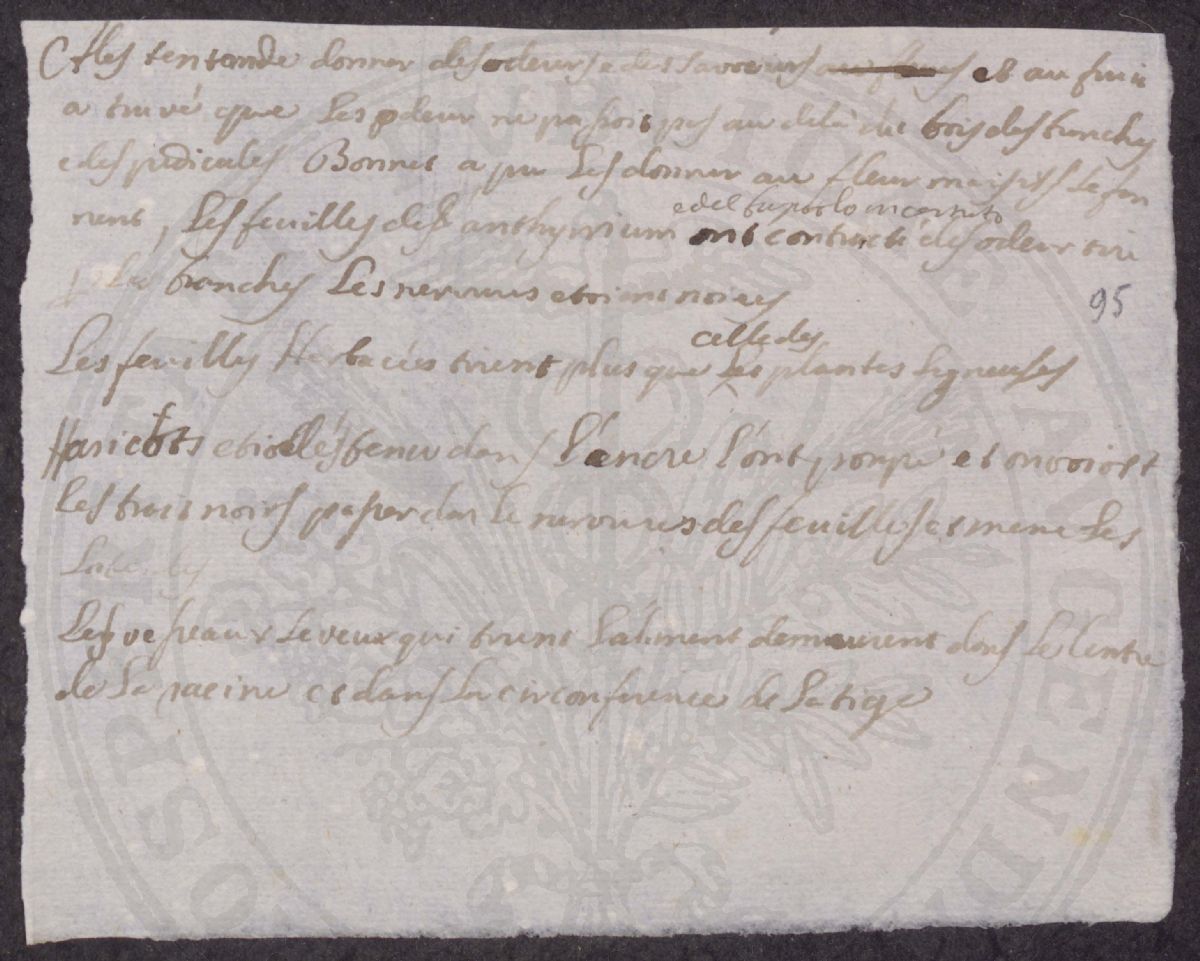 Ctles tentande donner des odeurs e des saveurs au fleurs et au fruit
a truvé que Les odeur ne passoit pas au delà du bois des branches
e des pediculés Bonnet a pu Les donner au fleur mais ils se fon
edel
nent, Les feuilles des anthyrrium ont contracté des odeur tiré
p La branches Les nervures etoient noires
95
celle des
Les feuilles Herbacées tirent plus que Les plantes Ligneuses
Haricots etiolés tenu dans L'encre L'ont pompé et on voioit
Les trait noirs passer dans le nervures des feuilles et meme Les
Les vesseaux seveux qui tirent L'aliment demeurent dans Le Centre
de La racine et dans La circonference de La tige